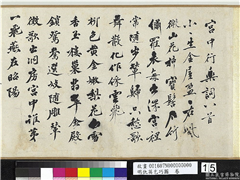 宮中行樂詞八首
小〻生金屋盈〻在紫
微山花插寶髻石竹
繡羅衣每出深宮裏
常隨步輦歸只愁歌
舞散化作綵雲飛
柳色黃金嫩梨花白雪
香玉樓巢翡翠金殿
鎖鴛鴦選妓隨雕輦
徵歌出洞房宮中誰第
一飛燕在昭陽
15